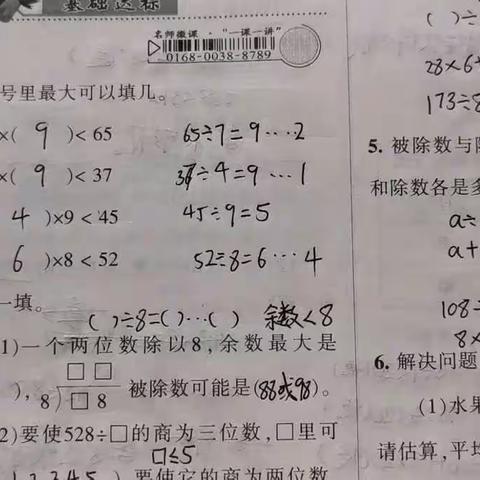 基础达标
名师微课·"一课一讲"
0168-0038-8789
号里最大可以填几。
×( 9 )<65 65÷7=9…2
×( 9 )<37 37÷4=9…1
4 )×9<45 45÷9=5
6 )×8<52 52÷8=6…4
一填。
( )÷8=( )…( ) 余数<8
1)一个两位数除以8,余数最大是
),
□□
8)□8 被除数可能是(88或98)。
2)要使528÷□的商为三位数,□里可
□≤5
1 2 3 4 5 ) 要使它的商为两位数
( )÷
28×6
173÷8
5. 被除数与
和除数各是多
a÷
a+
108=
8×
6. 解决问题
(1)水果
请估算,平均